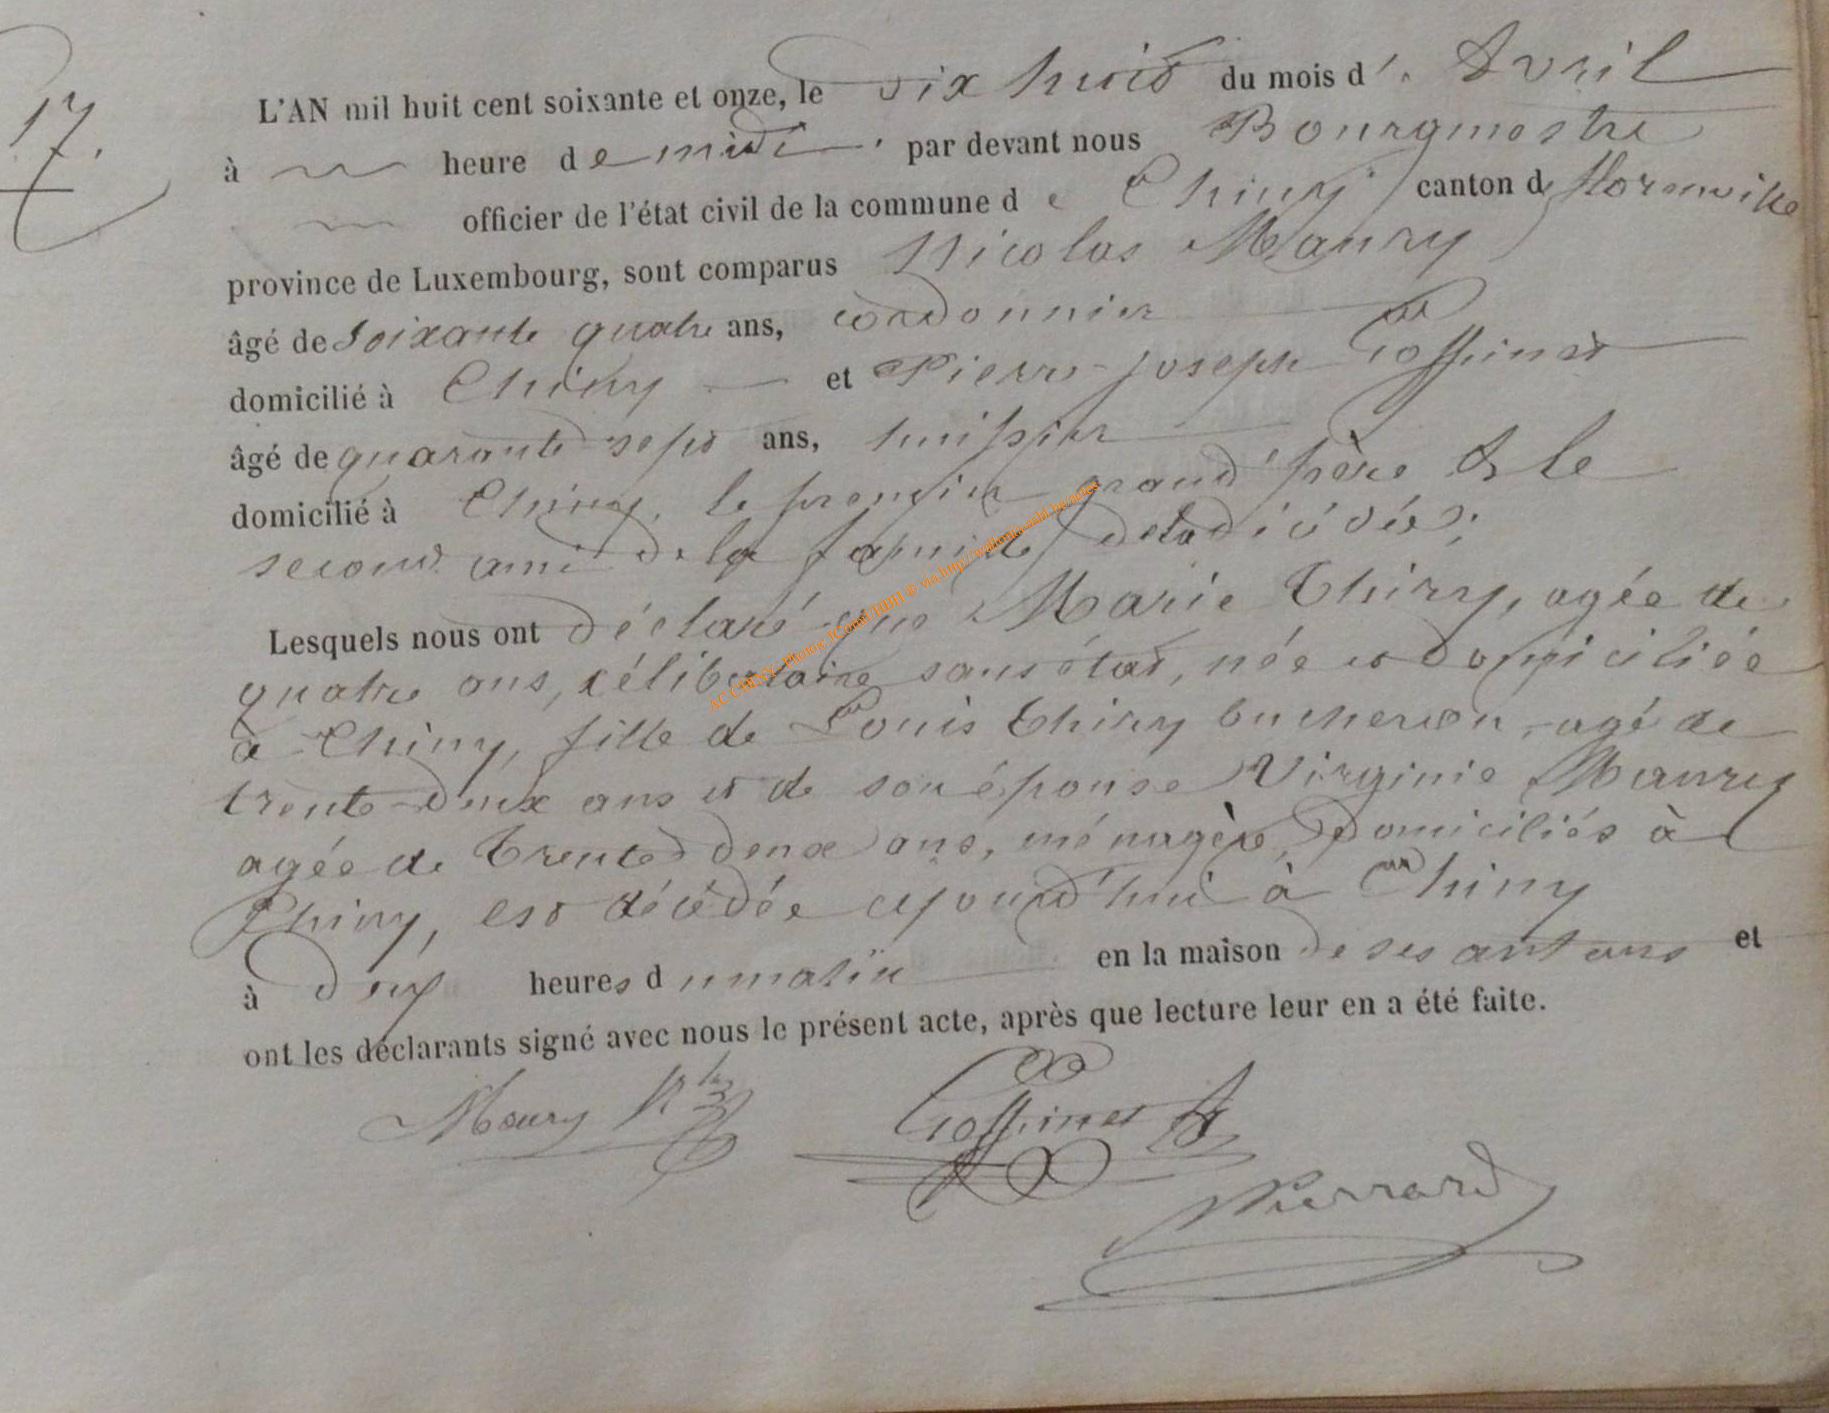 17.
L'AN mil huit cent soixante et onze, le dix huit du mois d'. Avril
à heure de midi par devant nous Bourgmestre
officier de l'état civil de la commune de Chiny canton de florenville
province de Luxembourg, sont comparus Nicolas Maury
âgé de soixante quatre ans, cordonnier
domicilié à Chiny et Pierre-Joseph Goffinet
âgé de quarante sept ans, huissier
domicilié à Chiny, le premier grand'père & le
second ami de la famille
Lesquels nous ont déclaré que Marie Thiry, agée de
quatre ans, célibataire sans état, née et domiciliée
à Chiny, fille de Louis Thiry bucheron, agé de
trente-deux ans et de son épouse Virginie Maury
agée de Trente deux ans, ménagère, domiciliés à
Chiny, est décédée cejourd'hui à Chiny
à deux heures du matin en la maison de ses et
ont les déclarants signé avec nous le présent acte, après que lecture leur en a été faite.
Maury Goffinet
Pierrard
AC CHINY - Photos